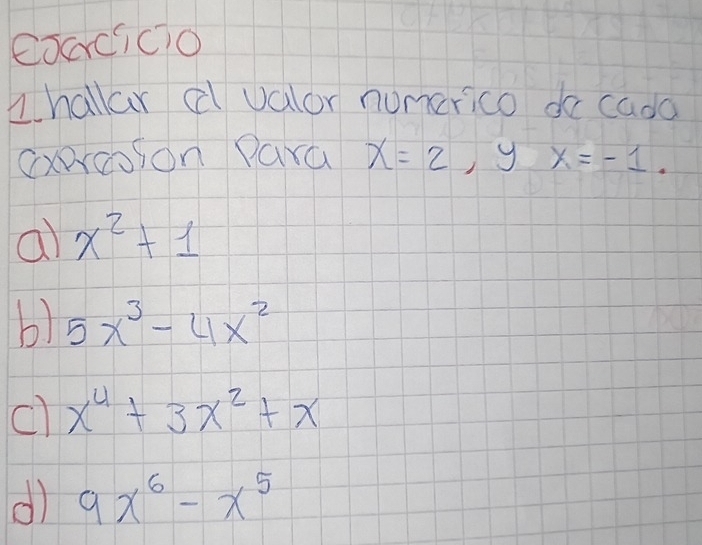 Exercicio
1. hallar el valor numerico de cada
expresion Para x = 2, y x = -1.
a) x² + 1
b) 5x³ - 4x²
c) x⁴ + 3x² + x
d) 9x⁶ - x⁵